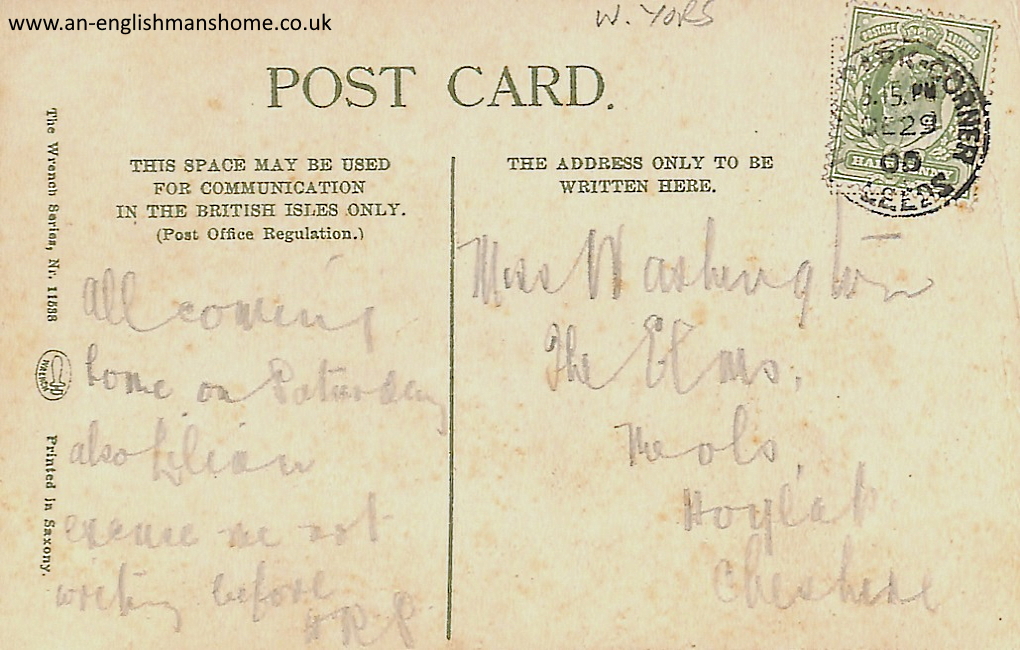 www.an-englishmanshome.co.uk
W. YORS
POST CARD.
THIS SPACE MAY BE USED
FOR COMMUNICATION
IN THE BRITISH ISLES ONLY.
(Post Office Regulation.)
THE ADDRESS ONLY TO BE
WRITTEN HERE.
POSTAGE
HALFPENNY
PARK-CORNER
8.15.PM
DE29
LEEDS
The Wrench Series, Nr. 11538
WRENCH
Printed in Saxony.
All coming
home on Saturday
also Lilian
excuse me not
writing before
Miss Washington
The Elms,
Meols,
Hoylake
Cheshire